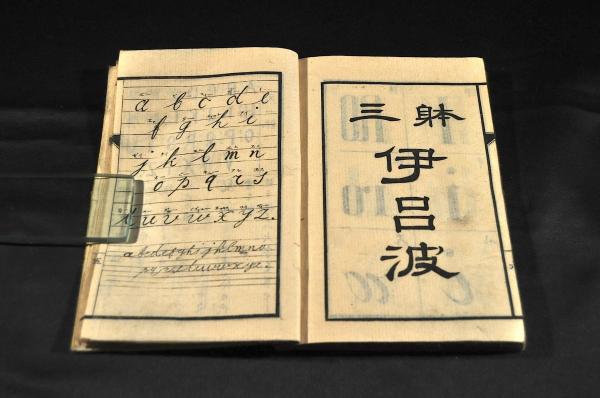 a b c d e
f g h i
j k l m n
o p q r s
t u v w x y z.
abcdefghijklmno
pqrstuvwxyz.
三躰
伊
呂
波